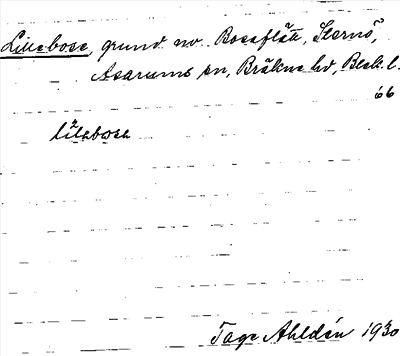 Lillabosa, grund nv. Bosaflätt, Sternö,
Asarums sn, Bräkne hd, Blek. l.
66
lilabosa
Tage Ahldén 1930